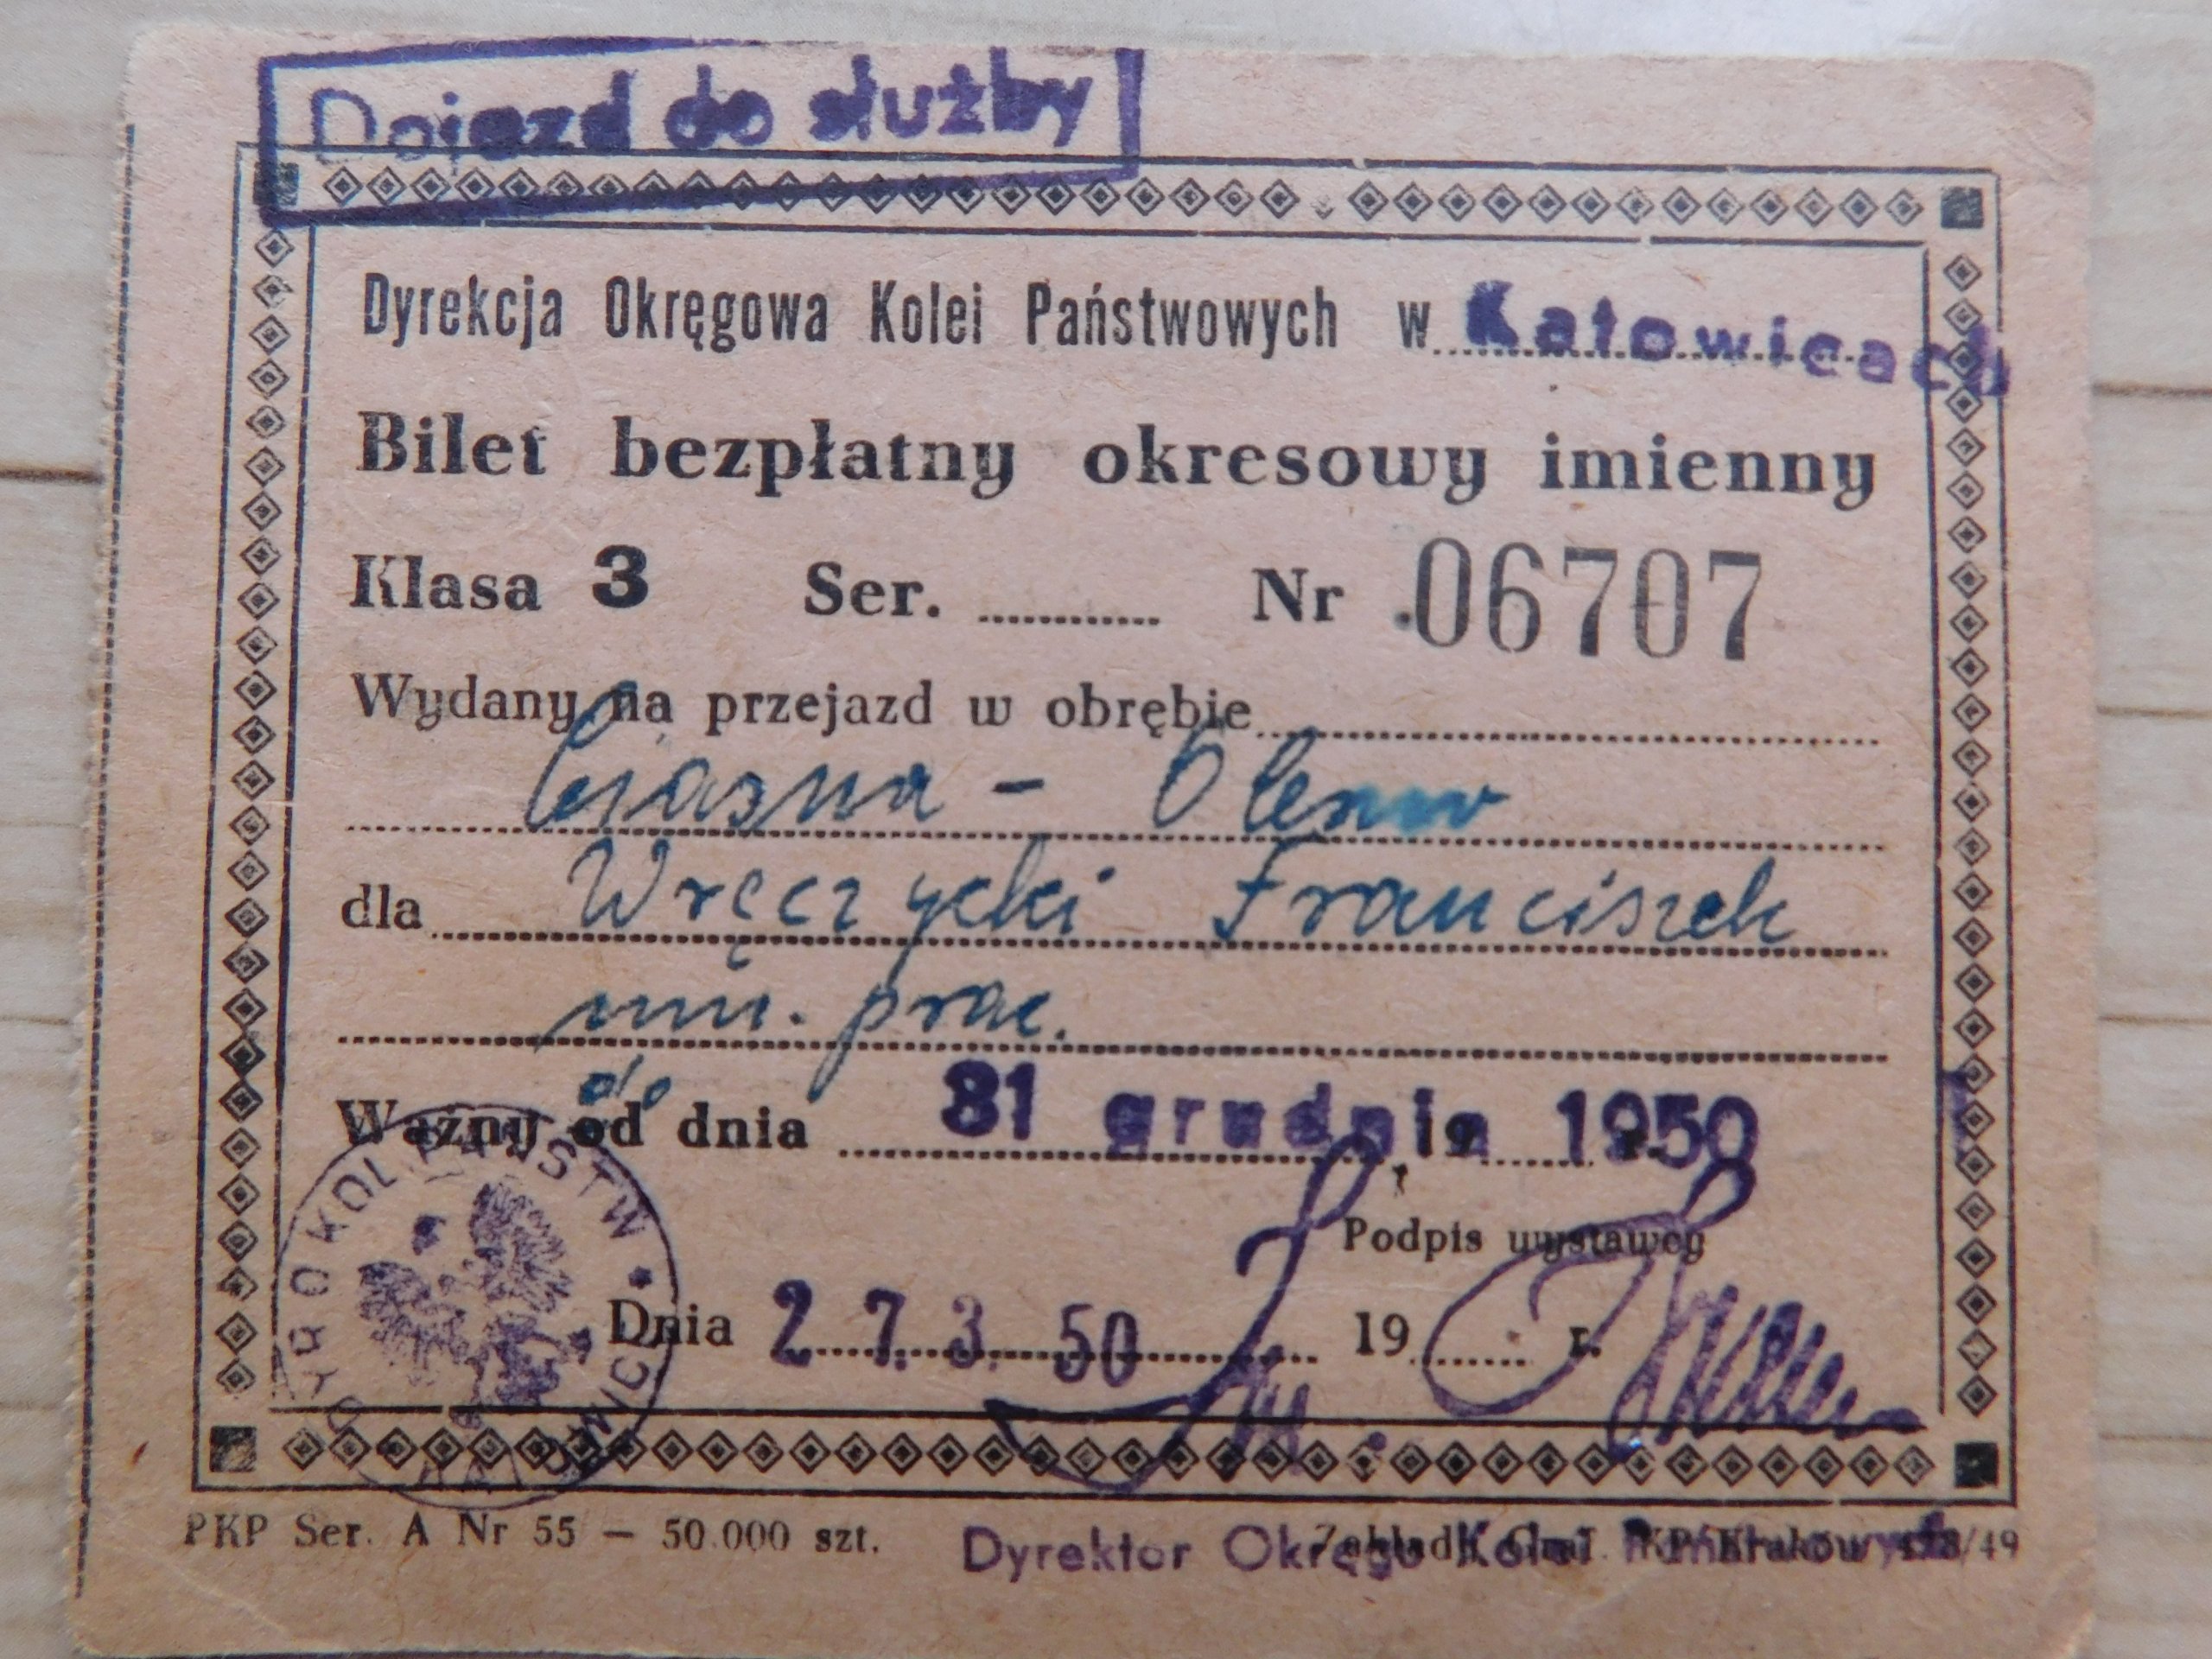 Dojazd do służby
Dyrekcja Okręgowa Kolei Państwowych w Katowicach
Bilet bezpłatny okresowy imienny
Klasa 3 Ser. Nr 06707
Wydany na przejazd w obrębie
Ciasna - Olesno
dla Wręczycki Franciszek
prac.
do
Ważny od dnia 31 grudnia 1950
Podpis wystawcy
Dnia 27. 3. 50 19 r.
DYR OKR KOL PAŃSTW KATOWICE
PKP Ser. A Nr 55 — 50.000 szt.
Dyrektor Okręgu Kolei Państwowych